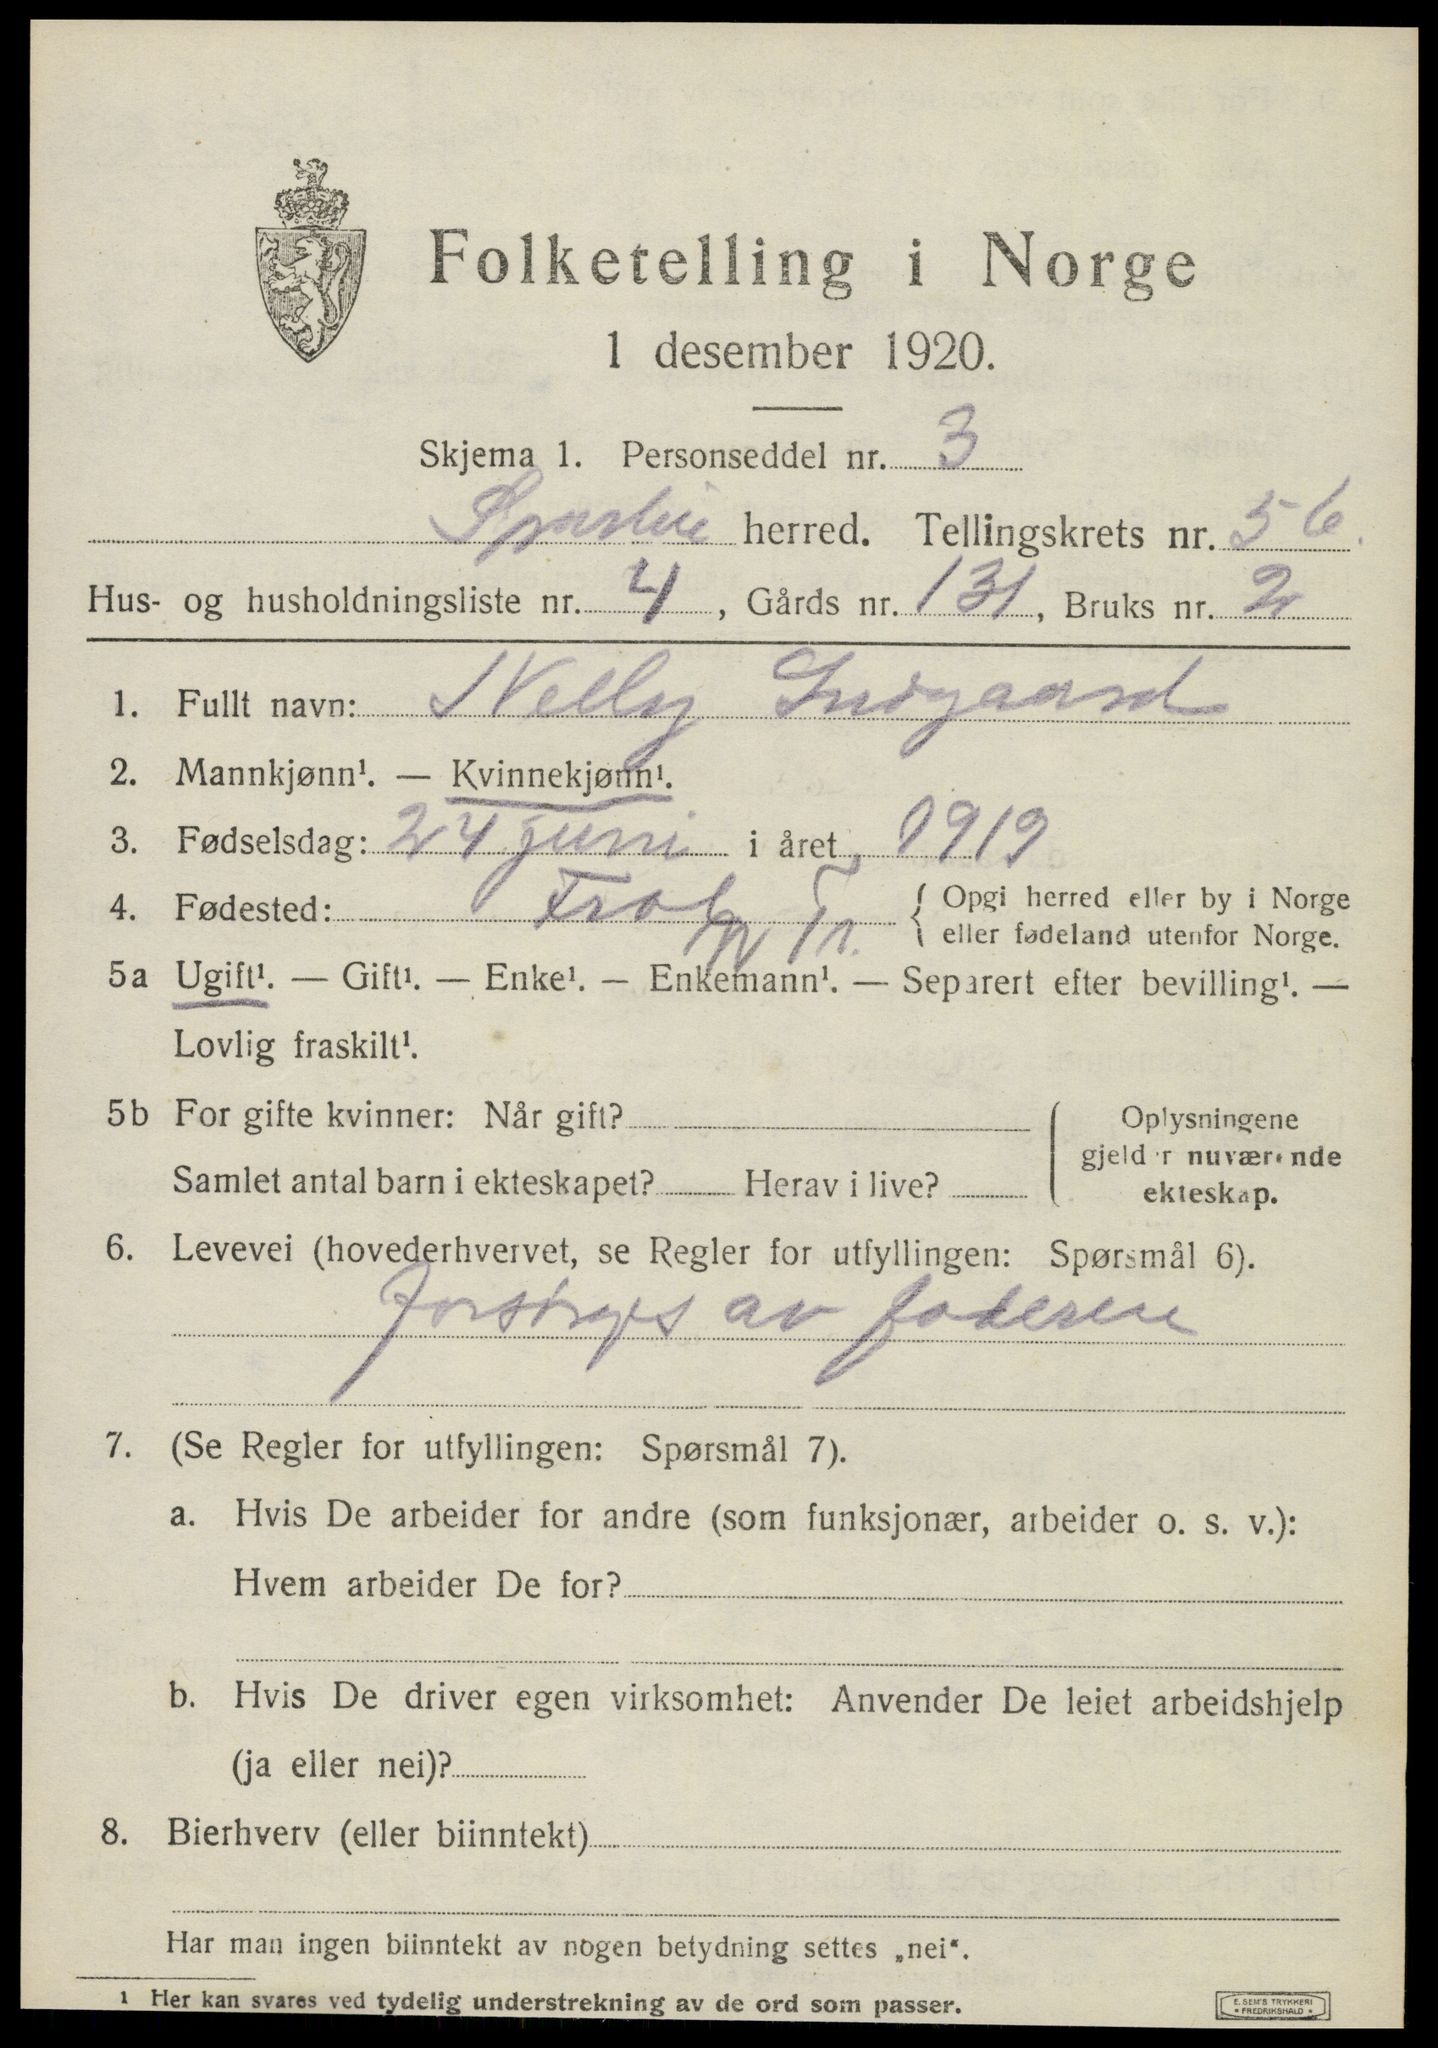 Folketelling i Norge
1 desember 1920.
Skjema 1. Personseddel nr. 3
Sparbu herred. Tellingskrets nr. 5 6.
Hus- og husholdningsliste nr. 4, Gårds nr. 131, Bruks nr. 2
1. Fullt navn: Nelly
2. Mannkjønn¹. — Kvinnekjønn¹.
3. Fødselsdag: 24 juni i året 1919
4. Fødested: Frol N. Tr. { Opgi herred eller by i Norge
eller fødeland utenfor Norge.
5a Ugift¹. — Gift¹. — Enke¹. — Enkemann¹. — Separert efter bevilling¹. —
Lovlig fraskilt¹.
5b For gifte kvinner: Når gift?
Samlet antal barn i ekteskapet? Herav i live?
Oplysningene
gjelder nuværende
ekteskap.
6. Levevei (hovederhvervet, se Regler for utfyllingen: Spørsmål 6).
Forsørges av faderen
7. (Se Regler for utfyllingen: Spørsmål 7).
a. Hvis De arbeider for andre (som funksjonær, arbeider o. s. v.):
Hvem arbeider De for?
b. Hvis De driver egen virksomhet: Anvender De leiet arbeidshjelp
(ja eller nei)?
8. Bierhverv (eller biinntekt)
Har man ingen biinntekt av nogen betydning settes „nei“.
1 Her kan svares ved tydelig understrekning av de ord som passer.
E. SEM'S TRYKKERI
* FREDRIKSHALD *